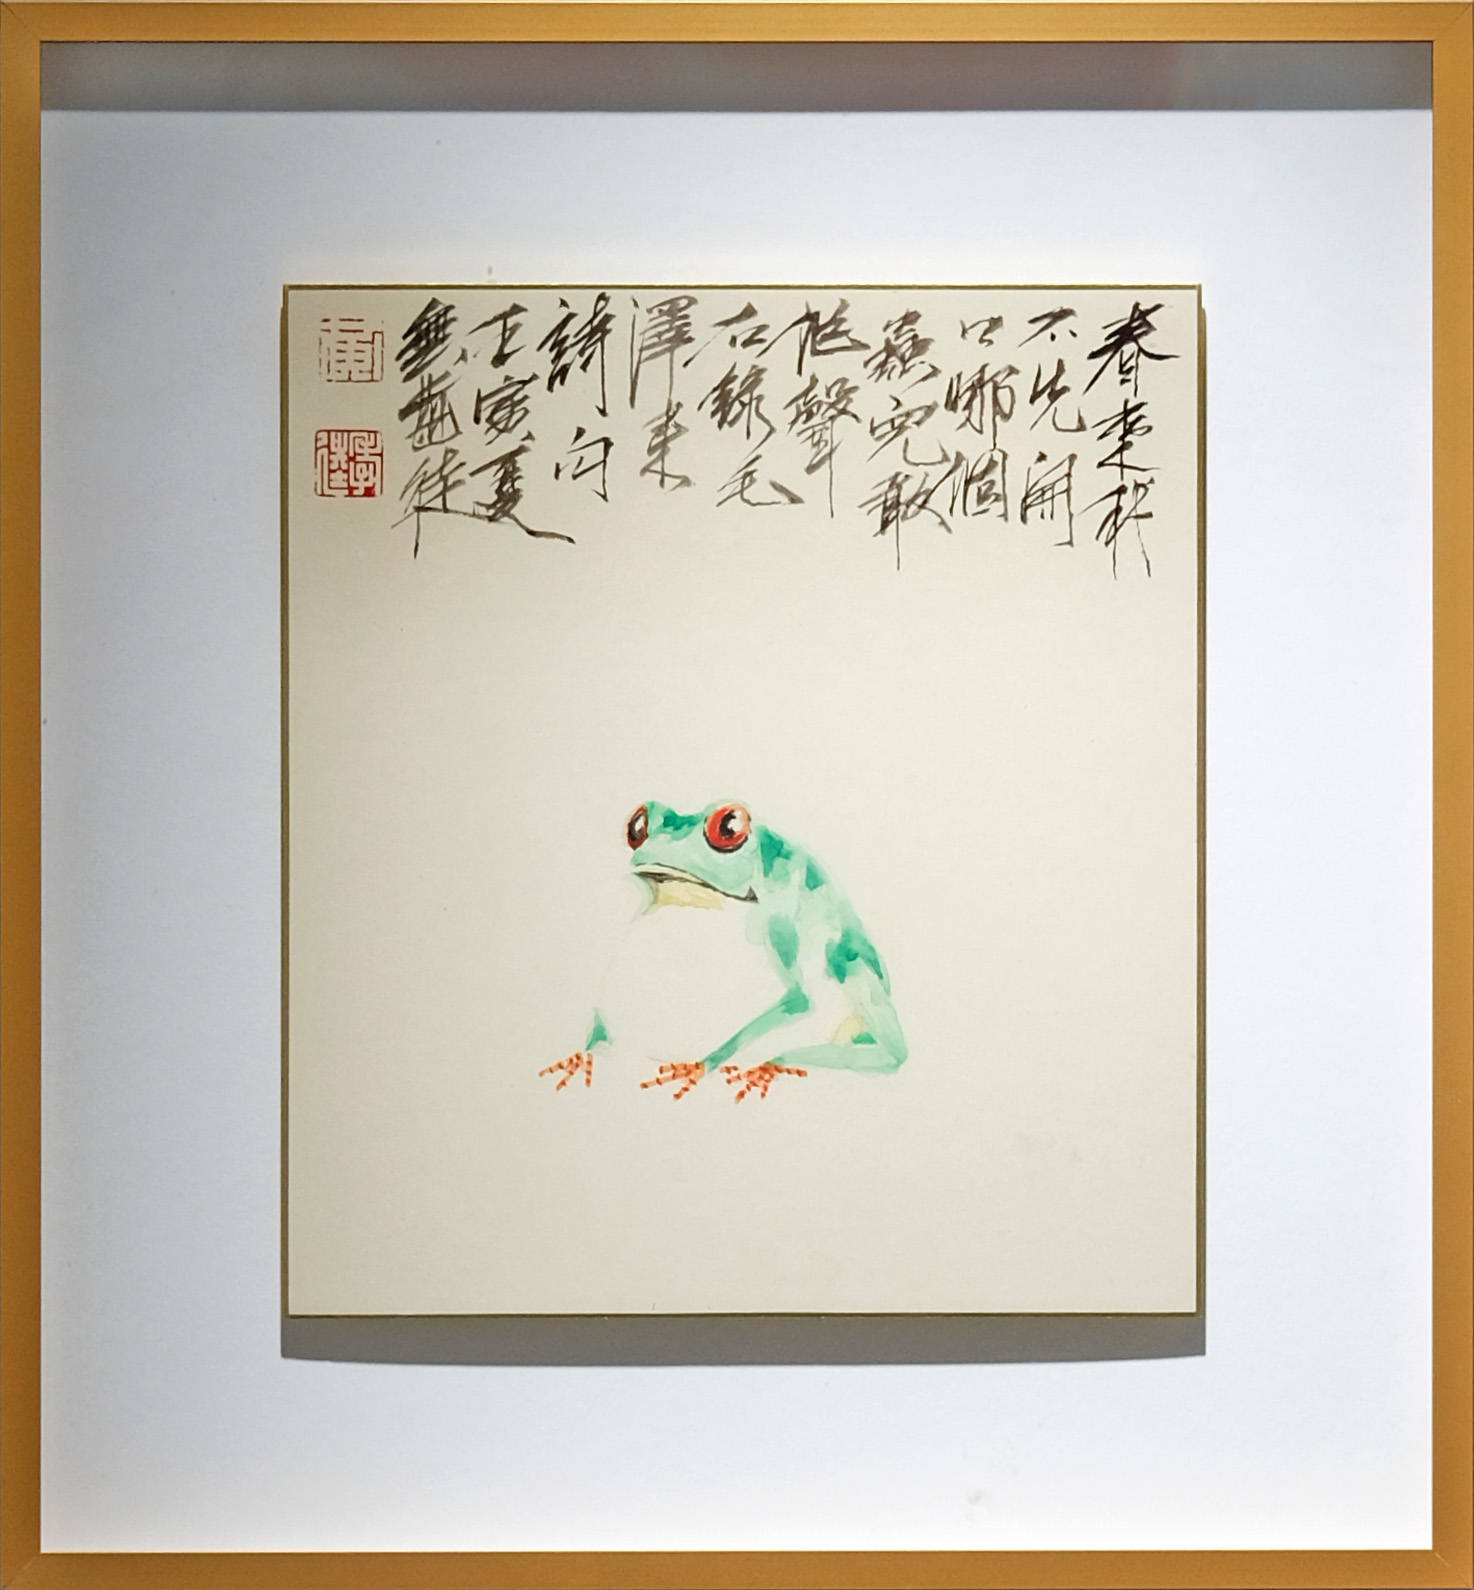 春來我
不先開
口哪個
蟲兒敢
作聲
右錄毛
澤東
詩句
壬寅夏
無黃徒